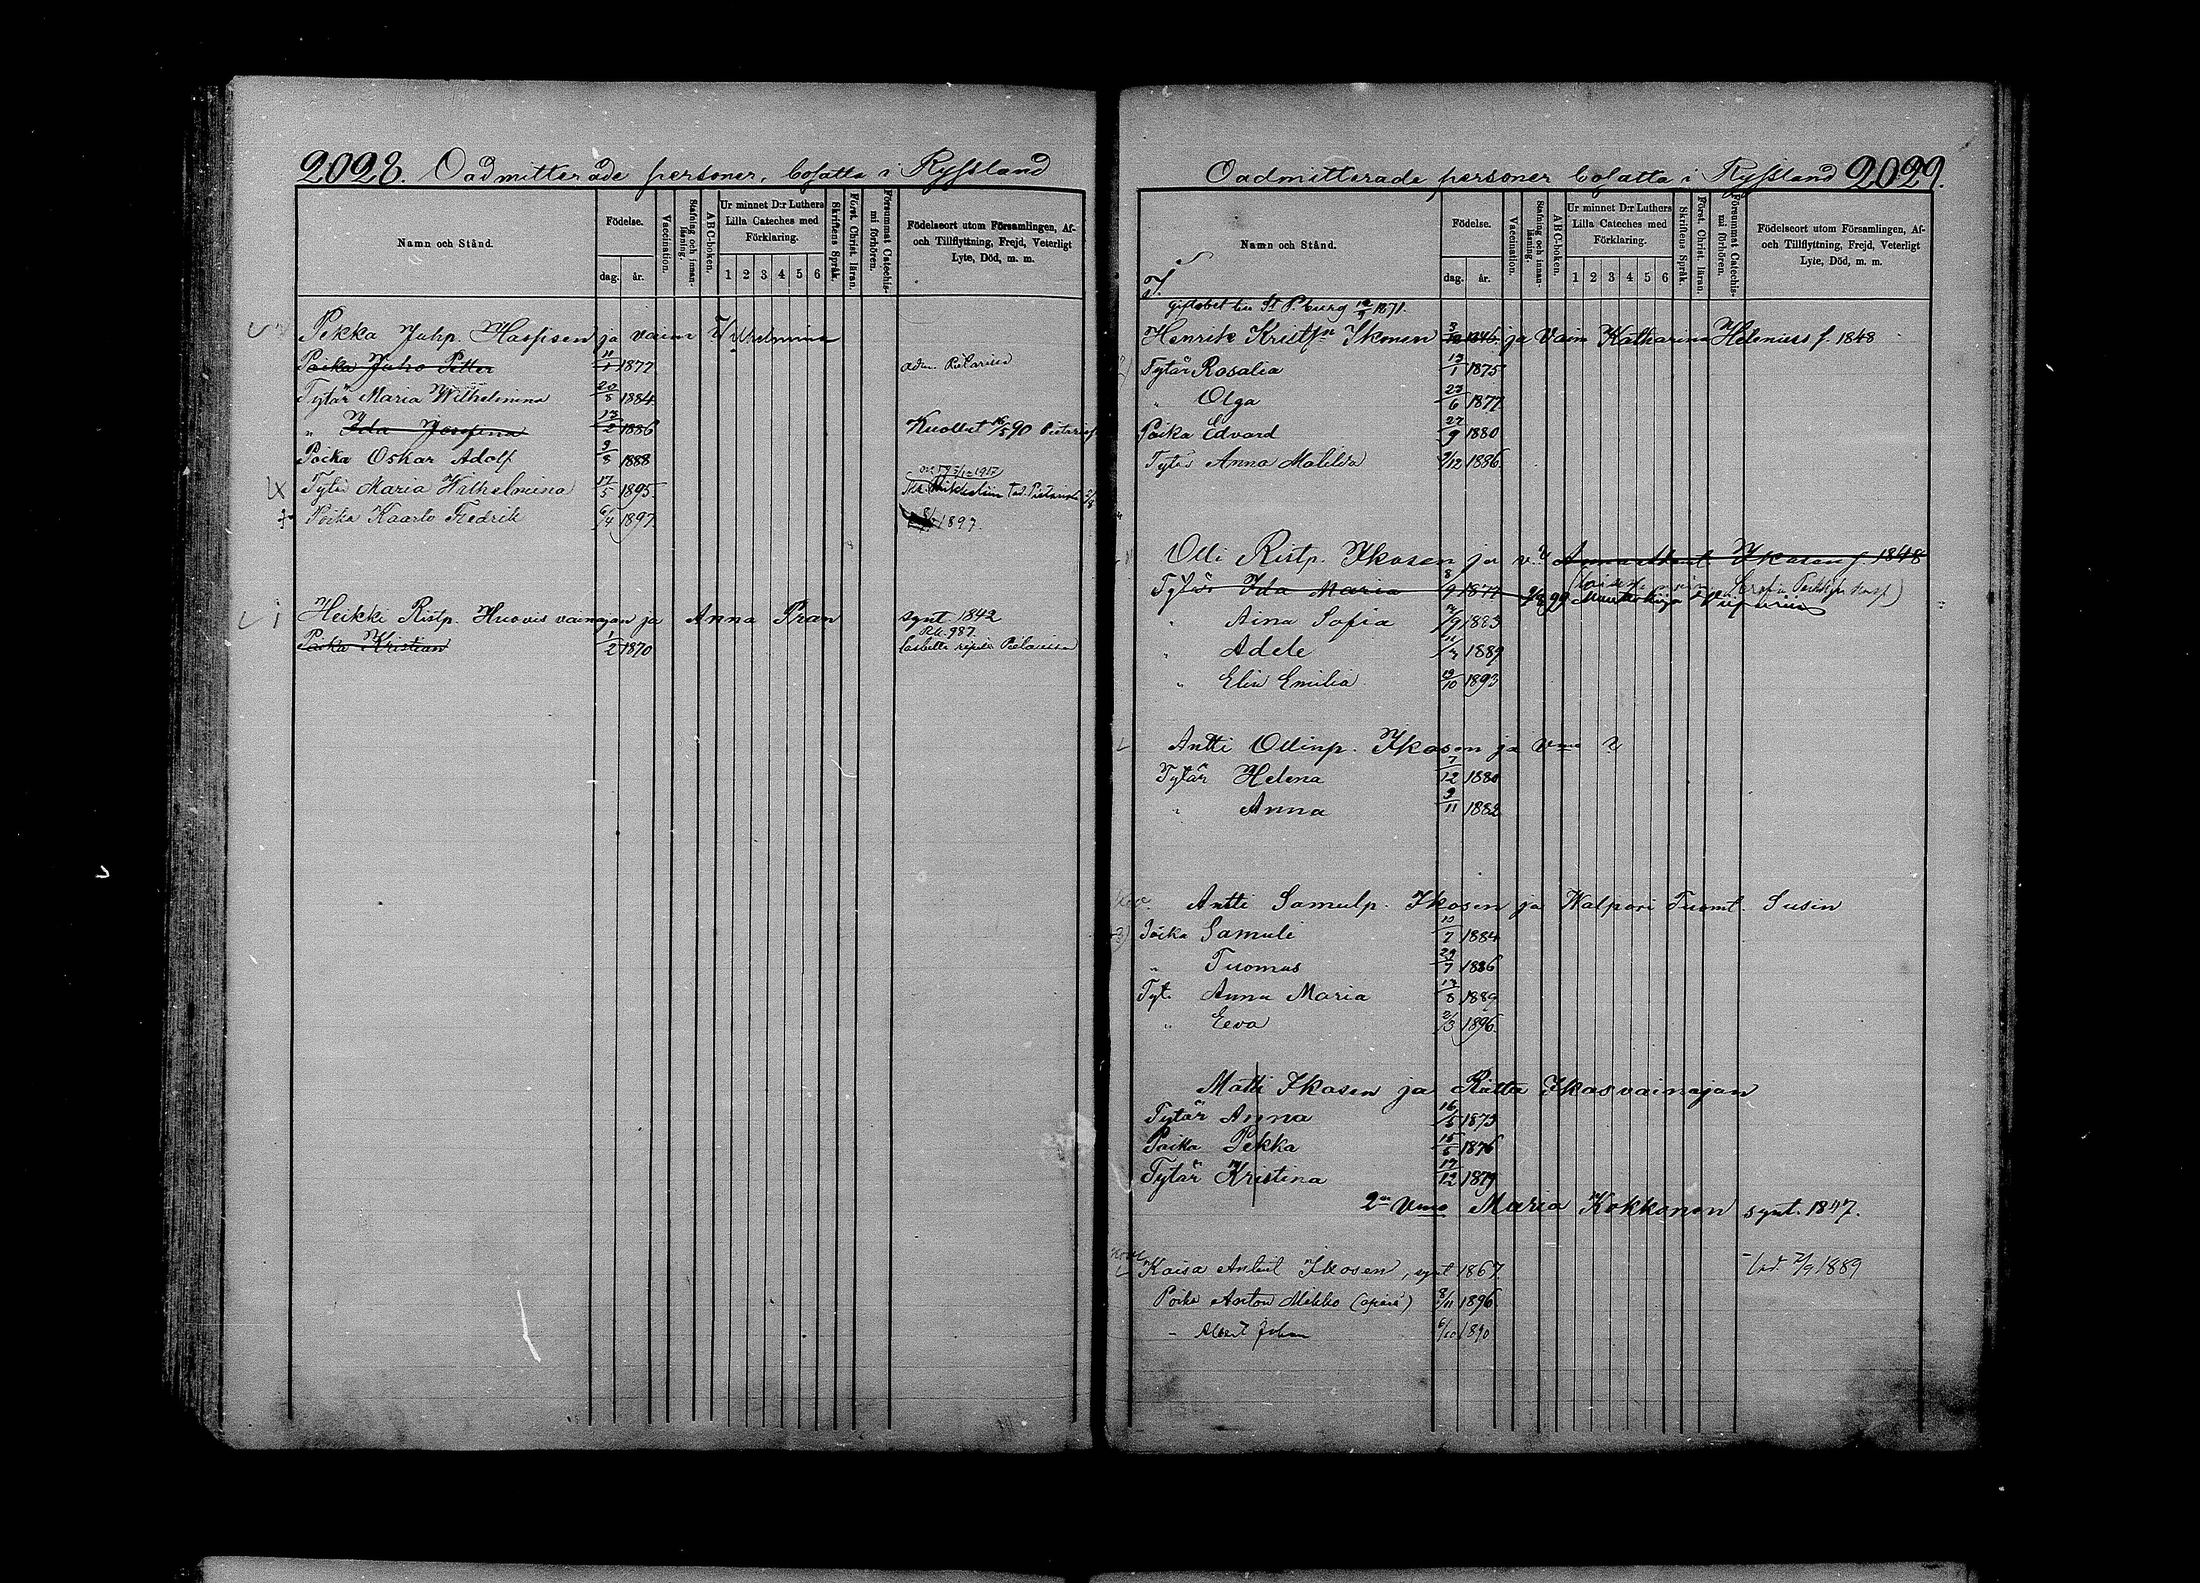 2028. Oadmitterade personer, bosatta i Ryssland
Namn och Stånd.
Födelse.
dag. år.
Vaccination.
Stafning och innanläsning.
ABC-boken.
Ur minnet D:r Luthers Lilla Cateches med Förklaring.
1 2 3 4 5 6
Skriftens Språk.
Först. Christ. läran.
Försummat Catechismi förhören.
Födelseort utom Församlingen, Af- och Tillflyttning, Frejd, Veterligt Lyte, Död, m. m.
Pekka Juhp. ja vaim Wilhelmina
Poika Juho Petter 11/1 1877
Tytär Maria Wilhelmina 20/8 1884
" Ida Josefina 13/2 1886 Kuollut 90
Poika Oskar Adolf 3/8 1888
Tytär Maria Wilhelmina 17/5 1895
Poika Kaarlo Fredrik 6/4 1897 1897.
Heikki Ristp. Huovisvainajan ja Anna Pran synt 1842
Poika Kristian 1/2 1870 987.
Oadmitterade personer bosatta i Ryssland 2029.
Namn och Stånd.
Födelse.
dag. år.
Vaccination.
Stafning och innanläsning.
ABC-boken.
Ur minnet D:r Luthers Lilla Cateches med Förklaring.
1 2 3 4 5 6
Skriftens Språk.
Först. Christ. läran.
Försummat Catechismi förhören.
Födelseort utom Församlingen, Af- och Tillflyttning, Frejd, Veterligt Lyte, Död, m. m.
St P.burg 1871.
Henrik Ikonen 1846 ja Vaim Katharina Helenius f. 1848
Tytär Rosalia 13/1 1875
" Olga 23/6 1877
Poika Edvard 27/9 1880
Tytär Anna Matilda 9/12 1886
Olli Ristp. Ikosen ja v. Ikosen f. 1848
Tytär Ida Maria 8/9 1877
" Aina Sofia 1883
" Adele 1889
" Elin Emilia 1893
Antti Ollinp. Ikosen ja vmo ?
Tytär Helena 7/12 1880
" Anna 9/11 1882
Antti Samulp. Ikosen ja Walpori Tuomt. Susin
Poika Samuli 10/7 1884
" Tuomas 29/7 1886
Tyt. Anna Maria 17/8 1889
" Eeva 2/3 1896
Matti Ikosen ja Riitta Ikosvainajan
Tytär Anna 16/5 1873
Poika Pekka 15/5 1876
Tytär Kristina 17/12 1879
2:n vmo Maria Kokkonen synt. 1847.
Kaisa Antint Ikosen, synt 1867. 1889
Poika Anton Mikko 8/11 1896
" Albert Johan 6/10 1890